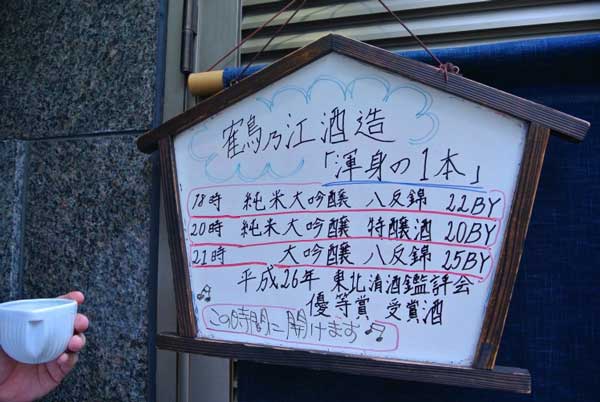 鶴乃江酒造
「渾身の1本」
18時 純米大吟醸 八反錦 22BY
20時 純米大吟醸 特醸酒 20BY
21時 大吟醸 八反錦 25BY
平成26年 東北清酒鑑評会
優等賞 受賞酒
♪この時間に開けます♪